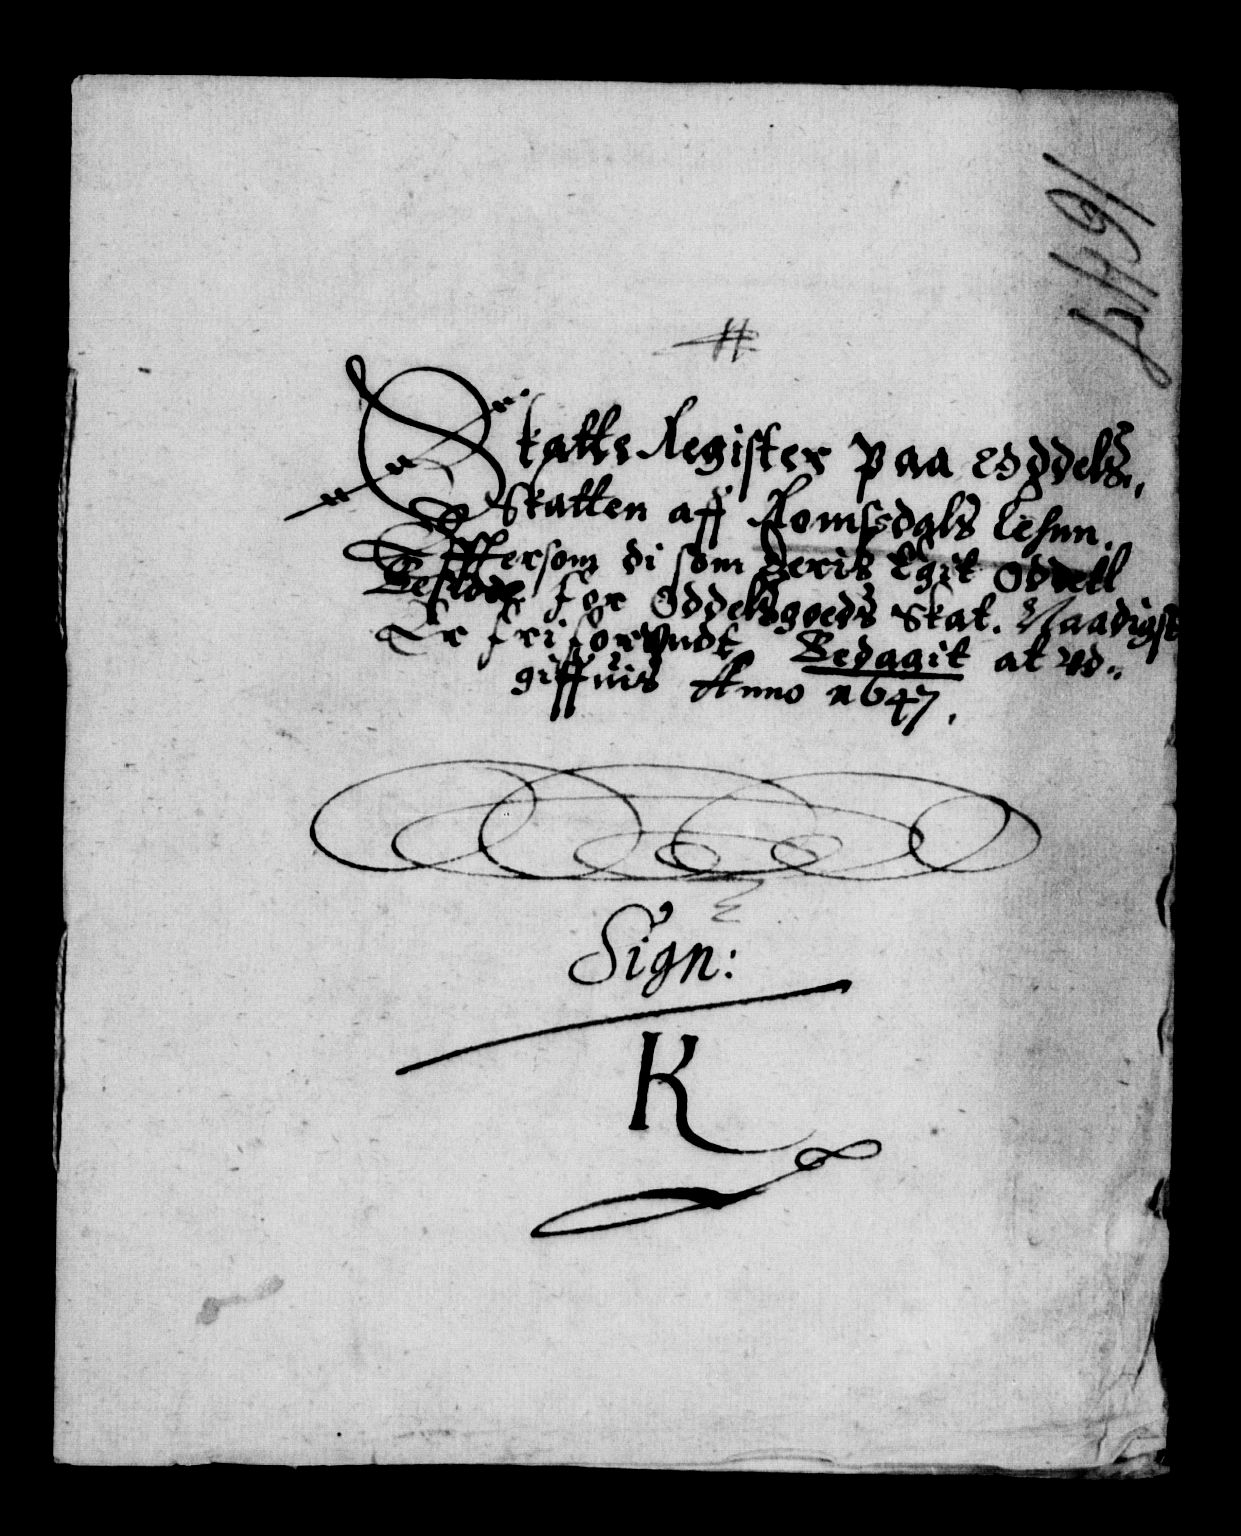 1647
Skatte Register paa Oddels
Skatten aff Romsdals Lehnn.
Effersom di som deris Egit Oddell
Besidde, for Oddelsgoeds Skat. Naadigst
Er fri forundt, Bedagit at vd-
giffuis Anno 1647.
Sign:
K